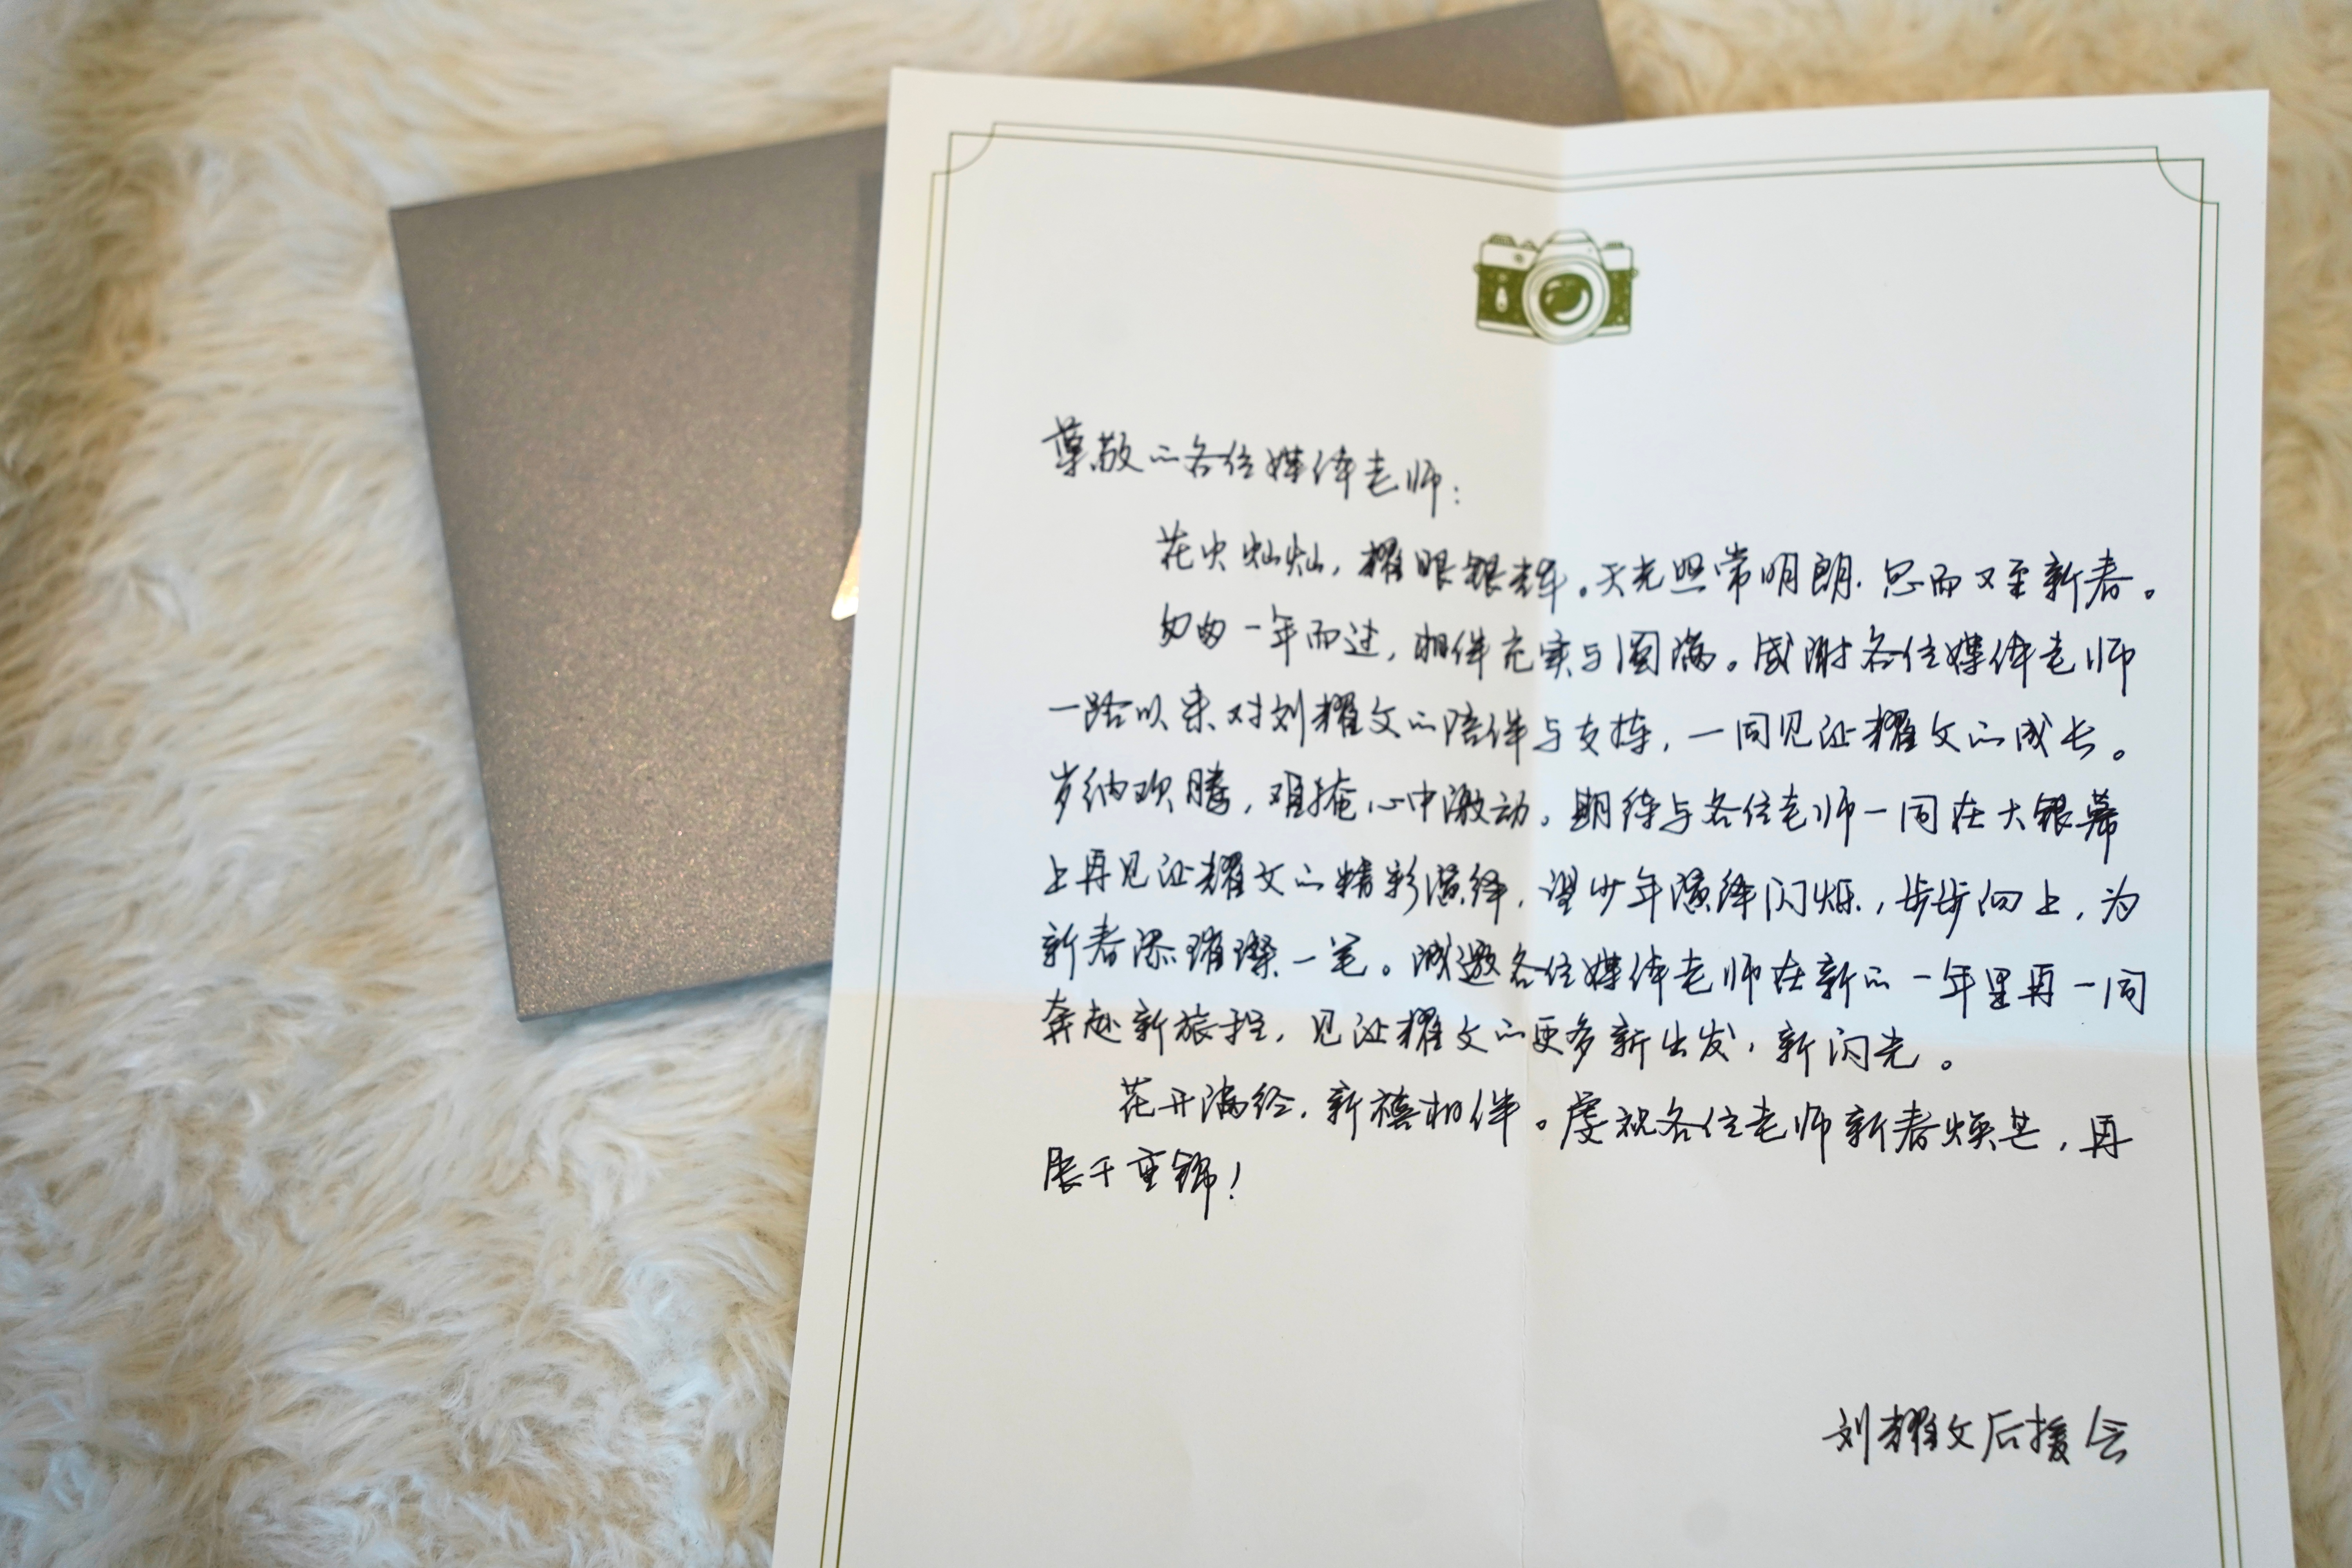 尊敬的各位媒体老师:
花火灿灿,耀眼银辉。天光照常明朗,忽而又至新春。
匆匆一年而过,相伴充实与圆满。感谢各位媒体老师
一路以来对刘耀文的陪伴与支持,一同见证耀文的成长。
岁纳欢腾,难掩心中激动。期待与各位老师一同在大银幕
上再见证耀文的精彩演绎,望少年演绎闪烁,步步向上,为
新春添璀璨一笔。诚邀各位媒体老师在新的一年里再一同
奔赴新旅程,见证耀文的更多新出发,新闪光。
花开满径,新禧相伴。虔祝各位老师新春焕芒,再
展千重锦!
刘耀文后援会